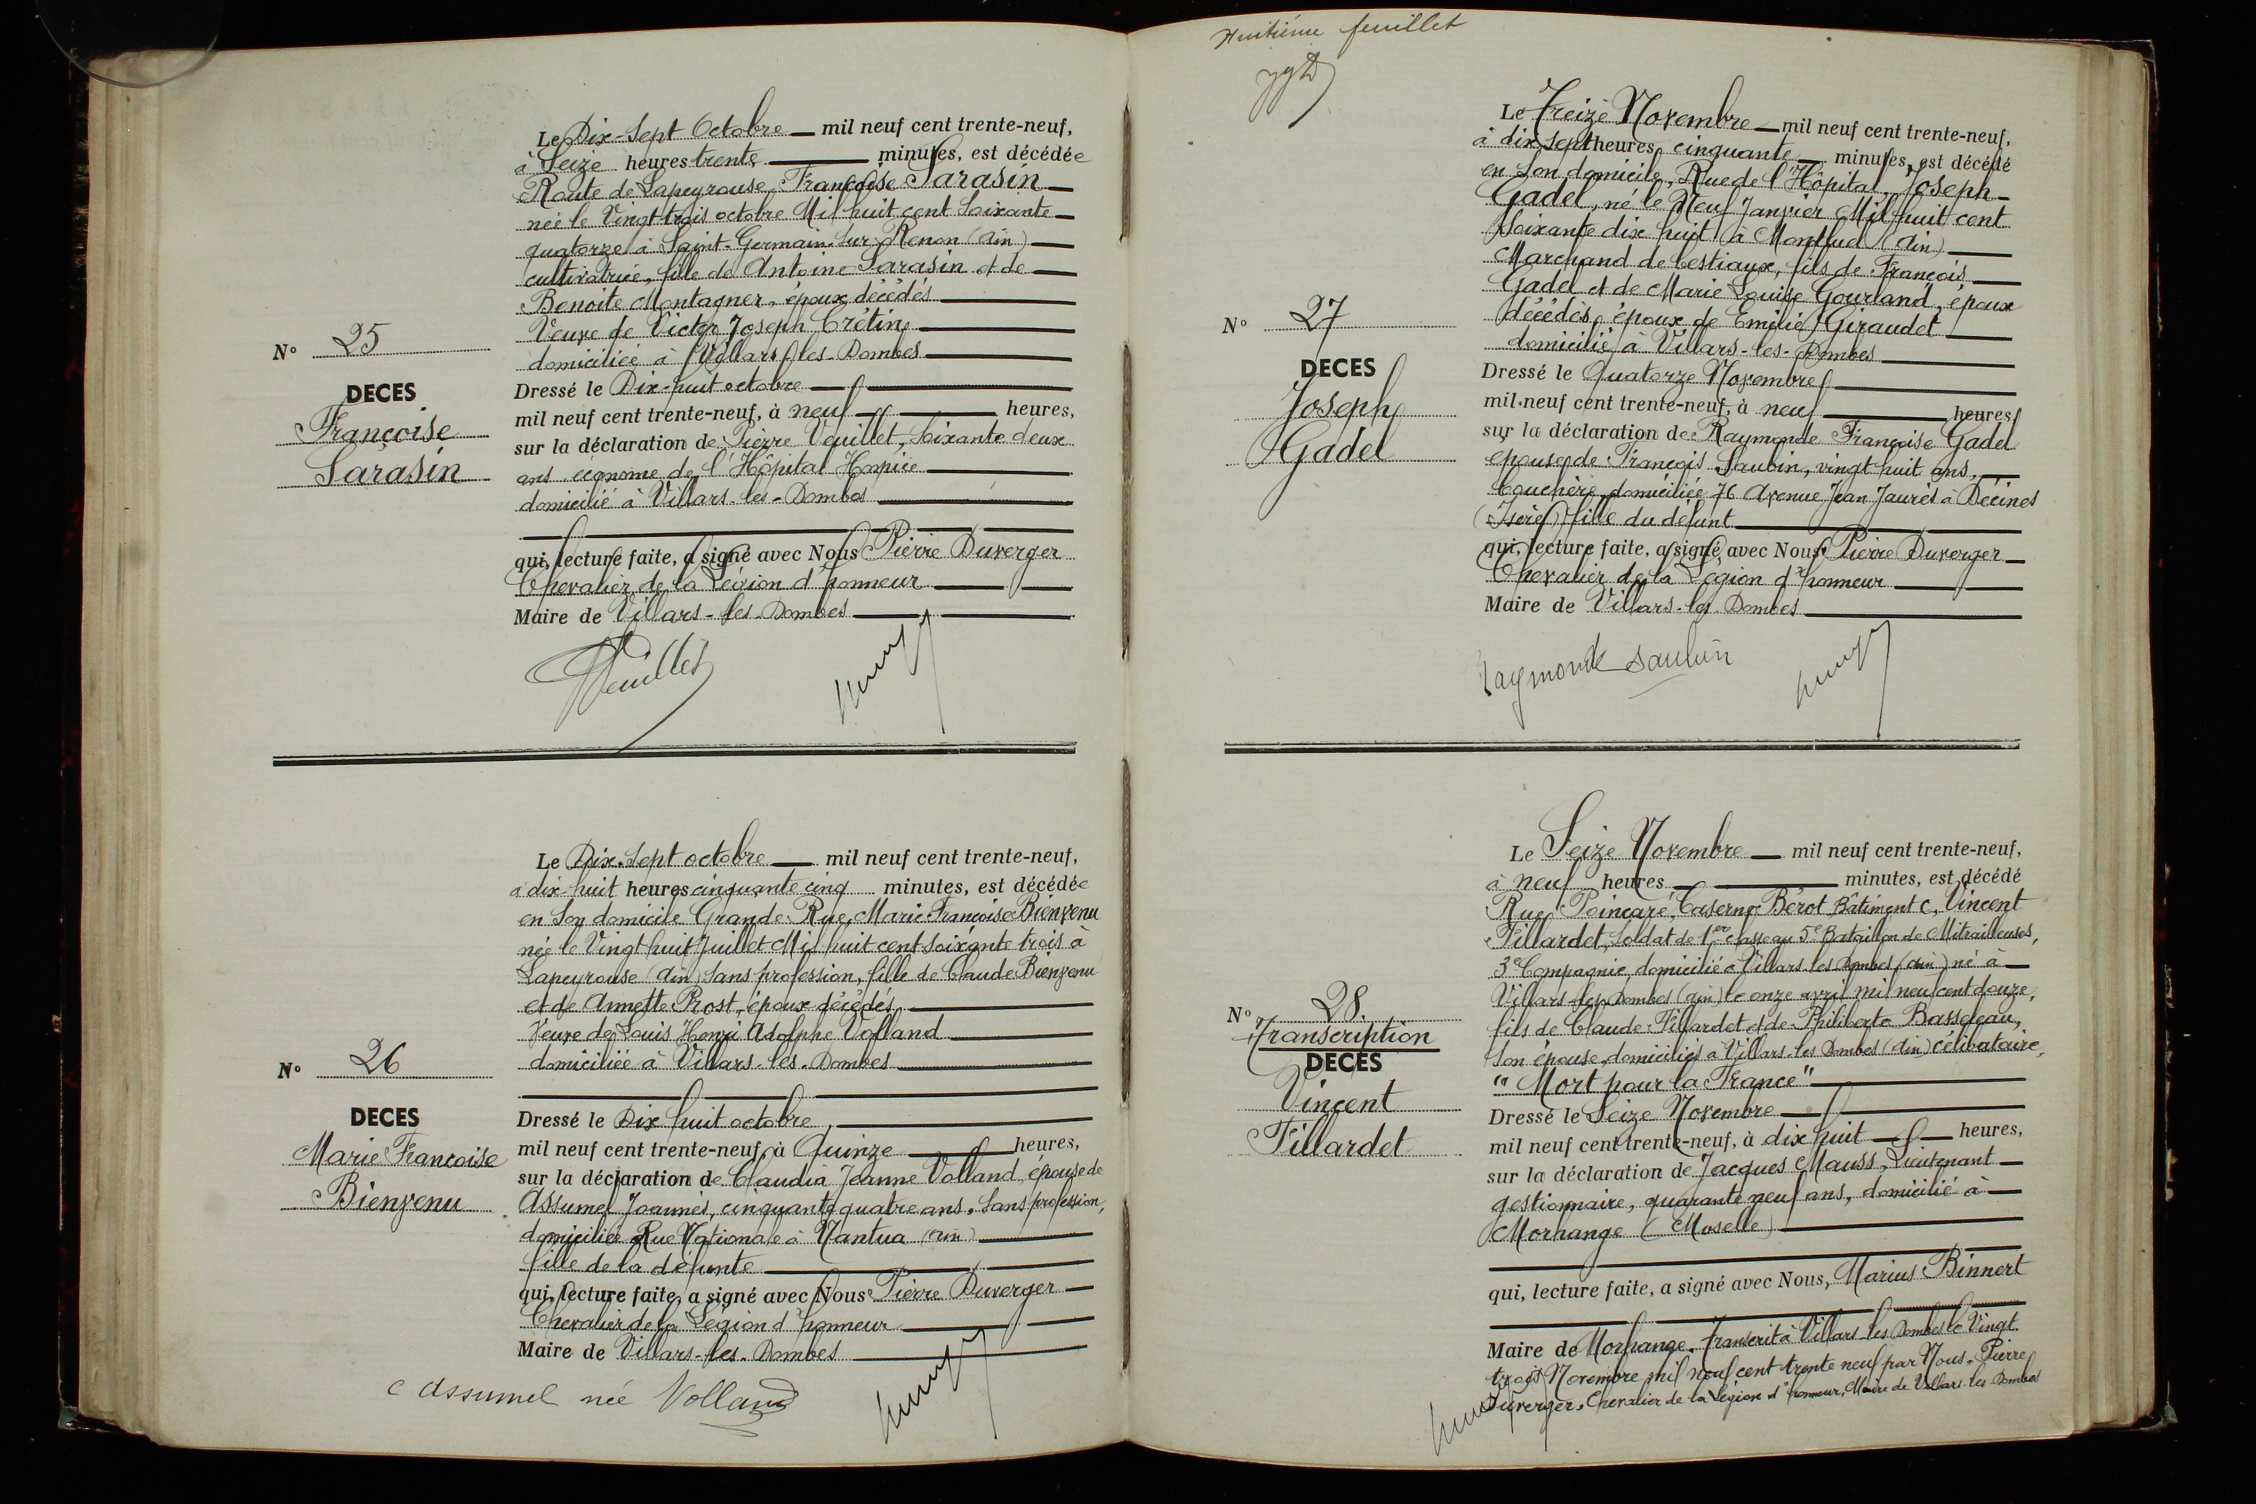 N° 25
DECES
Françoise
Sarasin
Le Dix-Sept Octobre mil neuf cent trente-neuf,
à Seize heures trente minutes, est décédée
Route de Lapeyrouse, Françoise Sarasin
née le Vingt-trois octobre Mil huit cent soixante
quatorze à Saint-Germain-sur-Renon (Ain)
cultivatrice, fille de Antoine Sarasin et de
Benoite Montagner, époux décédés
Veuve de Victor Joseph Crétin,
domiciliée à Villars-les-Dombes
Dressé le Dix-huit octobre
mil neuf cent trente-neuf, à neuf heures,
sur la déclaration de Pierre Veuillet, Soixante deux
ans économe de l'Hôpital Hospice
domicilié à Villars-les-Dombes
qui, lecture faite, a signé avec Nous Pierre Duverger
Chevalier de la Légion d'honneur
Maire de Villars-les-Dombes
Veuillet
N° 26
DECES
Marie Françoise
Bienvenu
Le Dix-Sept octobre mil neuf cent trente-neuf,
à dix-huit heures cinquante cinq minutes, est décédée
en son domicile Grande Rue, Marie-Françoise Bienvenu
née le Vingt huit Juillet Mil huit cent soixante trois à
Lapeyrouse (Ain) sans profession, fille de Claude Bienvenu
et de Annette Prost, époux décédés
Veuve de Louis Henri Adolphe Volland
domiciliée à Villars-les-Dombes
Dressé le Dix huit octobre,
mil neuf cent trente-neuf, à Quinze heures,
sur la déclaration de Claudia Jeanne Volland, épouse de
Assumel Joannès, cinquante quatre ans, Sans profession,
domiciliée Rue Nationale à Nantua (Ain)
fille de la défunte
qui, lecture faite, a signé avec Nous Pierre Duverger
Chevalier de la Légion d'honneur
Maire de Villars-les-Dombes
C Assumel née Volland
Huitième feuillet
N° 27
DECES
Joseph
Gadel
Le Treize Novembre mil neuf cent trente-neuf,
à dix sept heures cinquante minutes, est décédé
en Son domicile, Rue de l'Hôpital, Joseph
Gadel, né le Neuf Janvier Mil huit cent
Soixante dix huit à Montluel (Ain)
Marchand de bestiaux, fils de François
Gadel et de Marie Louise Gourland, époux
décédés, époux de Emilie Giraudet
domicilié à Villars-les-Dombes
Dressé le Quatorze Novembre
mil neuf cent trente-neuf, à neuf heures,
sur la déclaration de Raymonde Françoise Gadel
épouse de François Saubin, vingt-huit ans,
bouchère, domiciliée 76 Avenue Jean Jaurès à Décines
(Isère) fille du défunt
qui, lecture faite, a signé avec Nous Pierre Duverger
Chevalier de la Légion d'honneur
Maire de Villars-les-Dombes
Raymonde Saubin
N° 28.
Transcription
DECES
Vincent
Tillardet
Le Seize Novembre mil neuf cent trente-neuf,
à neuf heures minutes, est décédé
Rue Poincaré, Caserne Bérot Bâtiment C, Vincent
Tillardet, Soldat de 1er classe au 5e Bataillon de Mitrailleuses,
3e Compagnie, domicilié à Villars les Dombes (Ain) né à
Villars-les-Dombes (Ain) le onze avril mil neuf cent douze,
fils de Claude Tillardet et de Philiberte Bassereau,
Son épouse, domiciliés à Villars-les Dombes (Ain) célibataire,
"Mort pour la France"
Dressé le Seize Novembre
mil neuf cent trente-neuf, à dix huit heures,
sur la déclaration de Jacques Mauss, Lieutenant
gestionnaire, quarante neuf ans, domicilié à
Morhange (Moselle)
qui, lecture faite, a signé avec Nous, Marius Binnert
Maire de Morhange. Transcrit à Villars les Dombes le Vingt
trois Novembre mil neuf cent trente neuf par Nous, Pierre
Duverger, Chevalier de la Légion d'honneur, Maire de Villars-les Dombes